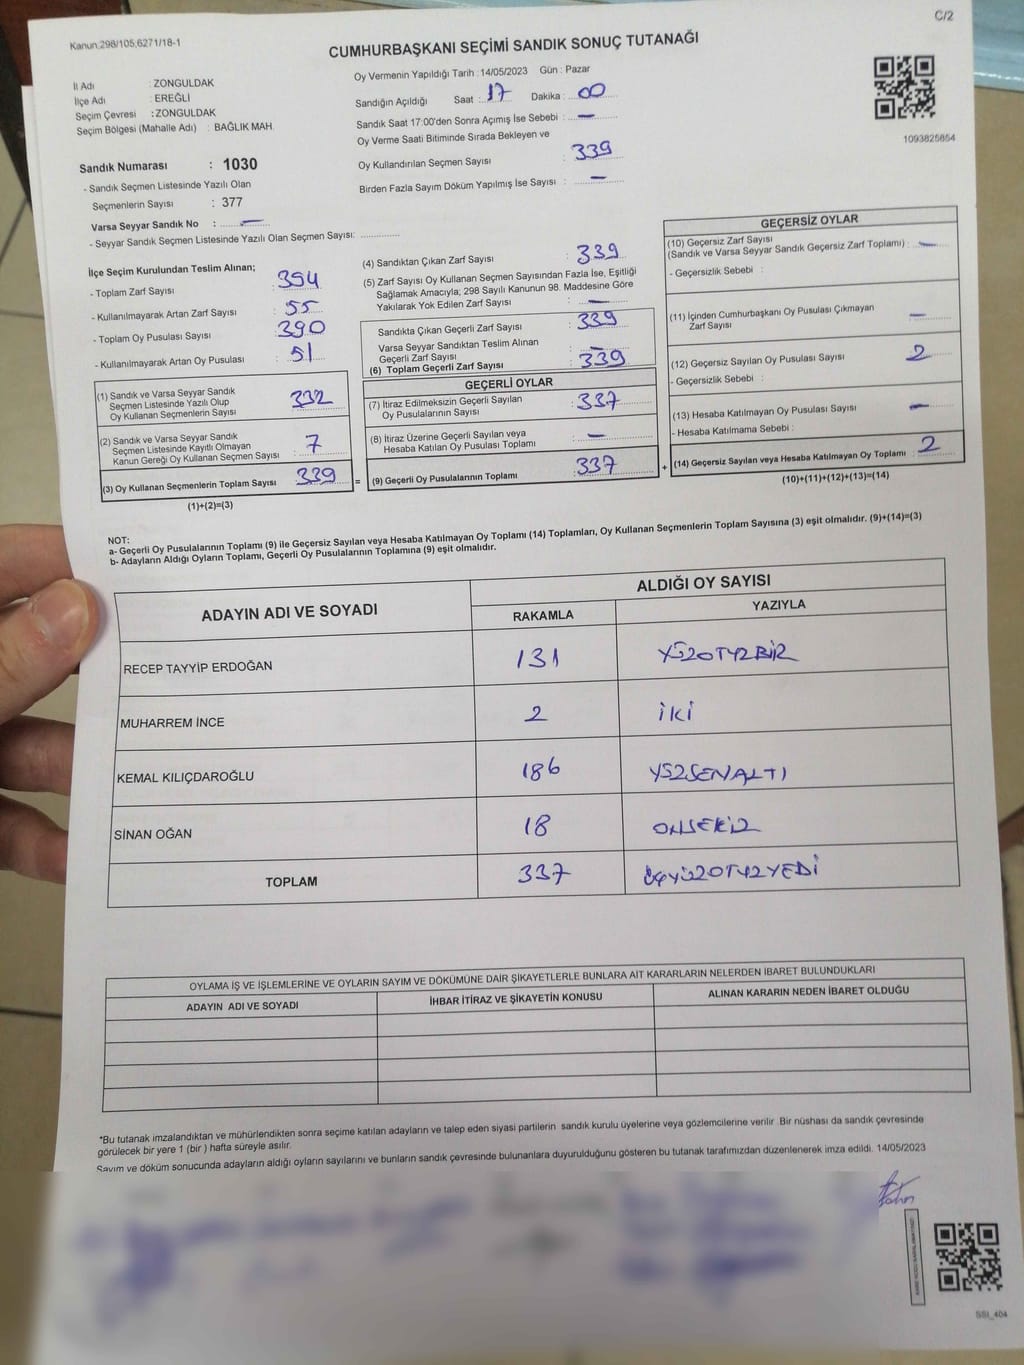 C/2
Kanun:298/105,6271/18-1
CUMHURBAŞKANI SEÇİMİ SANDIK SONUÇ TUTANAĞI
İl Adı : ZONGULDAK
İlçe Adı : EREĞLİ
Seçim Çevresi : ZONGULDAK
Seçim Bölgesi (Mahalle Adı) : BAĞLIK MAH.
Oy Vermenin Yapıldığı Tarih : 14/05/2023 Gün : Pazar
Sandığın Açıldığı Saat : 17 Dakika : 00
Sandık Saat 17:00'den Sonra Açımış İse Sebebi : —
Oy Verme Saati Bitiminde Sırada Bekleyen ve
Oy Kullandırılan Seçmen Sayısı : 339
Birden Fazla Sayım Döküm Yapılmış İse Sayısı : —
1093825854
Sandık Numarası : 1030
- Sandık Seçmen Listesinde Yazılı Olan
Seçmenlerin Sayısı : 377
Varsa Seyyar Sandık No : —
- Seyyar Sandık Seçmen Listesinde Yazılı Olan Seçmen Sayısı: ..............
İlçe Seçim Kurulundan Teslim Alınan;
- Toplam Zarf Sayısı : 394
- Kullanılmayarak Artan Zarf Sayısı : 55
- Toplam Oy Pusulası Sayısı : 390
- Kullanılmayarak Artan Oy Pusulası : 51
(1) Sandık ve Varsa Seyyar Sandık
Seçmen Listesinde Yazılı Olup
Oy Kullanan Seçmenlerin Sayısı : 332
(2) Sandık ve Varsa Seyyar Sandık
Seçmen Listesinde Kayıtlı Olmayan
Kanun Gereği Oy Kullanan Seçmen Sayısı : 7
(3) Oy Kullanan Seçmenlerin Toplam Sayısı : 339
(1)+(2)=(3)
(4) Sandıktan Çıkan Zarf Sayısı : 339
(5) Zarf Sayısı Oy Kullanan Seçmen Sayısından Fazla İse, Eşitliği
Sağlamak Amacıyla; 298 Sayılı Kanunun 98. Maddesine Göre
Yakılarak Yok Edilen Zarf Sayısı : —
Sandıkta Çıkan Geçerli Zarf Sayısı : 339
Varsa Seyyar Sandıktan Teslim Alınan
Geçerli Zarf Sayısı : —
(6) Toplam Geçerli Zarf Sayısı : 339
GEÇERLİ OYLAR
(7) İtiraz Edilmeksizin Geçerli Sayılan
Oy Pusulalarının Sayısı : 337
(8) İtiraz Üzerine Geçerli Sayılan veya
Hesaba Katılan Oy Pusulası Toplamı : —
= (9) Geçerli Oy Pusulalarının Toplamı : 337
GEÇERSİZ OYLAR
(10) Geçersiz Zarf Sayısı
(Sandık ve Varsa Seyyar Sandık Geçersiz Zarf Toplamı) : —
- Geçersizlik Sebebi :
(11) İçinden Cumhurbaşkanı Oy Pusulası Çıkmayan
Zarf Sayısı : —
(12) Geçersiz Sayılan Oy Pusulası Sayısı : 2
- Geçersizlik Sebebi :
(13) Hesaba Katılmayan Oy Pusulası Sayısı : —
- Hesaba Katılmama Sebebi :
+ (14) Geçersiz Sayılan veya Hesaba Katılmayan Oy Toplamı : 2
(10)+(11)+(12)+(13)=(14)
NOT:
a- Geçerli Oy Pusulalarının Toplamı (9) ile Geçersiz Sayılan veya Hesaba Katılmayan Oy Toplamı (14) Toplamları, Oy Kullanan Seçmenlerin Toplam Sayısına (3) eşit olmalıdır. (9)+(14)=(3)
b- Adayların Aldığı Oyların Toplamı, Geçerli Oy Pusulalarının Toplamına (9) eşit olmalıdır.
ADAYIN ADI VE SOYADI ALDIĞI OY SAYISI
RAKAMLA YAZIYLA
RECEP TAYYİP ERDOĞAN 131 YÜZOTUZBİR
MUHARREM İNCE 2 İKİ
KEMAL KILIÇDAROĞLU 186 YÜZSENALTI
SİNAN OĞAN 18 ONSEKİZ
TOPLAM 337 ÜÇYÜZOTUZYEDİ
OYLAMA İŞ VE İŞLEMLERİNE VE OYLARIN SAYIM VE DÖKÜMÜNE DAİR ŞİKAYETLERLE BUNLARA AİT KARARLARIN NELERDEN İBARET BULUNDUKLARI
ADAYIN ADI VE SOYADI İHBAR İTİRAZ VE ŞİKAYETİN KONUSU ALINAN KARARIN NEDEN İBARET OLDUĞU
*Bu tutanak imzalandıktan ve mühürlendikten sonra seçime katılan adayların ve talep eden siyasi partilerin sandık kurulu üyelerine veya gözlemcilerine verilir. Bir nüshası da sandık çevresinde
görülecek bir yere 1 (bir ) hafta süreyle asılır.
Sayım ve döküm sonucunda adayların aldığı oyların sayılarını ve bunların sandık çevresinde bulunanlara duyurulduğunu gösteren bu tutanak tarafımızdan düzenlenerek imza edildi. 14/05/2023
SSI_404